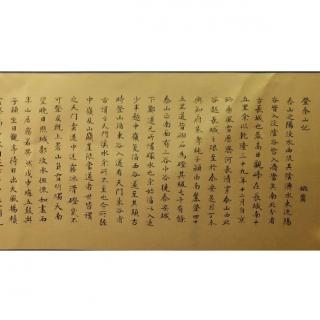 登泰山記
姚鼐
泰山之陽汶水西流其陰濟水東流陽
谷皆入汶陰谷皆入濟當其南北分者
古長城也最高日觀峰在長城南十
五里余以乾隆三十九年十二月自京
師乘風雪歷齊河長清穿泰山西北
谷越長城之限至於泰安是月丁未
與知府朱孝純子潁由南麓登四十
五里道皆砌石為磴其級七千有餘
泰山正南面有三谷中谷繞泰安城
下酈道元所謂環水也余始循以入道
少半越中嶺復循西谷遂至其巔古
時登山循東谷入道有天門東谷者
古謂之天門谿水余所不至也今所經
中嶺及山巔崖限當道者世皆謂
之天門云道中迷霧冰滑磴幾不
可登及既上蒼山負雪明燭天南
望晚日照城郭汶水徂徠如畫而
半山居霧若帶然戊申晦五鼓與
子潁坐日觀亭待日出大風揚積